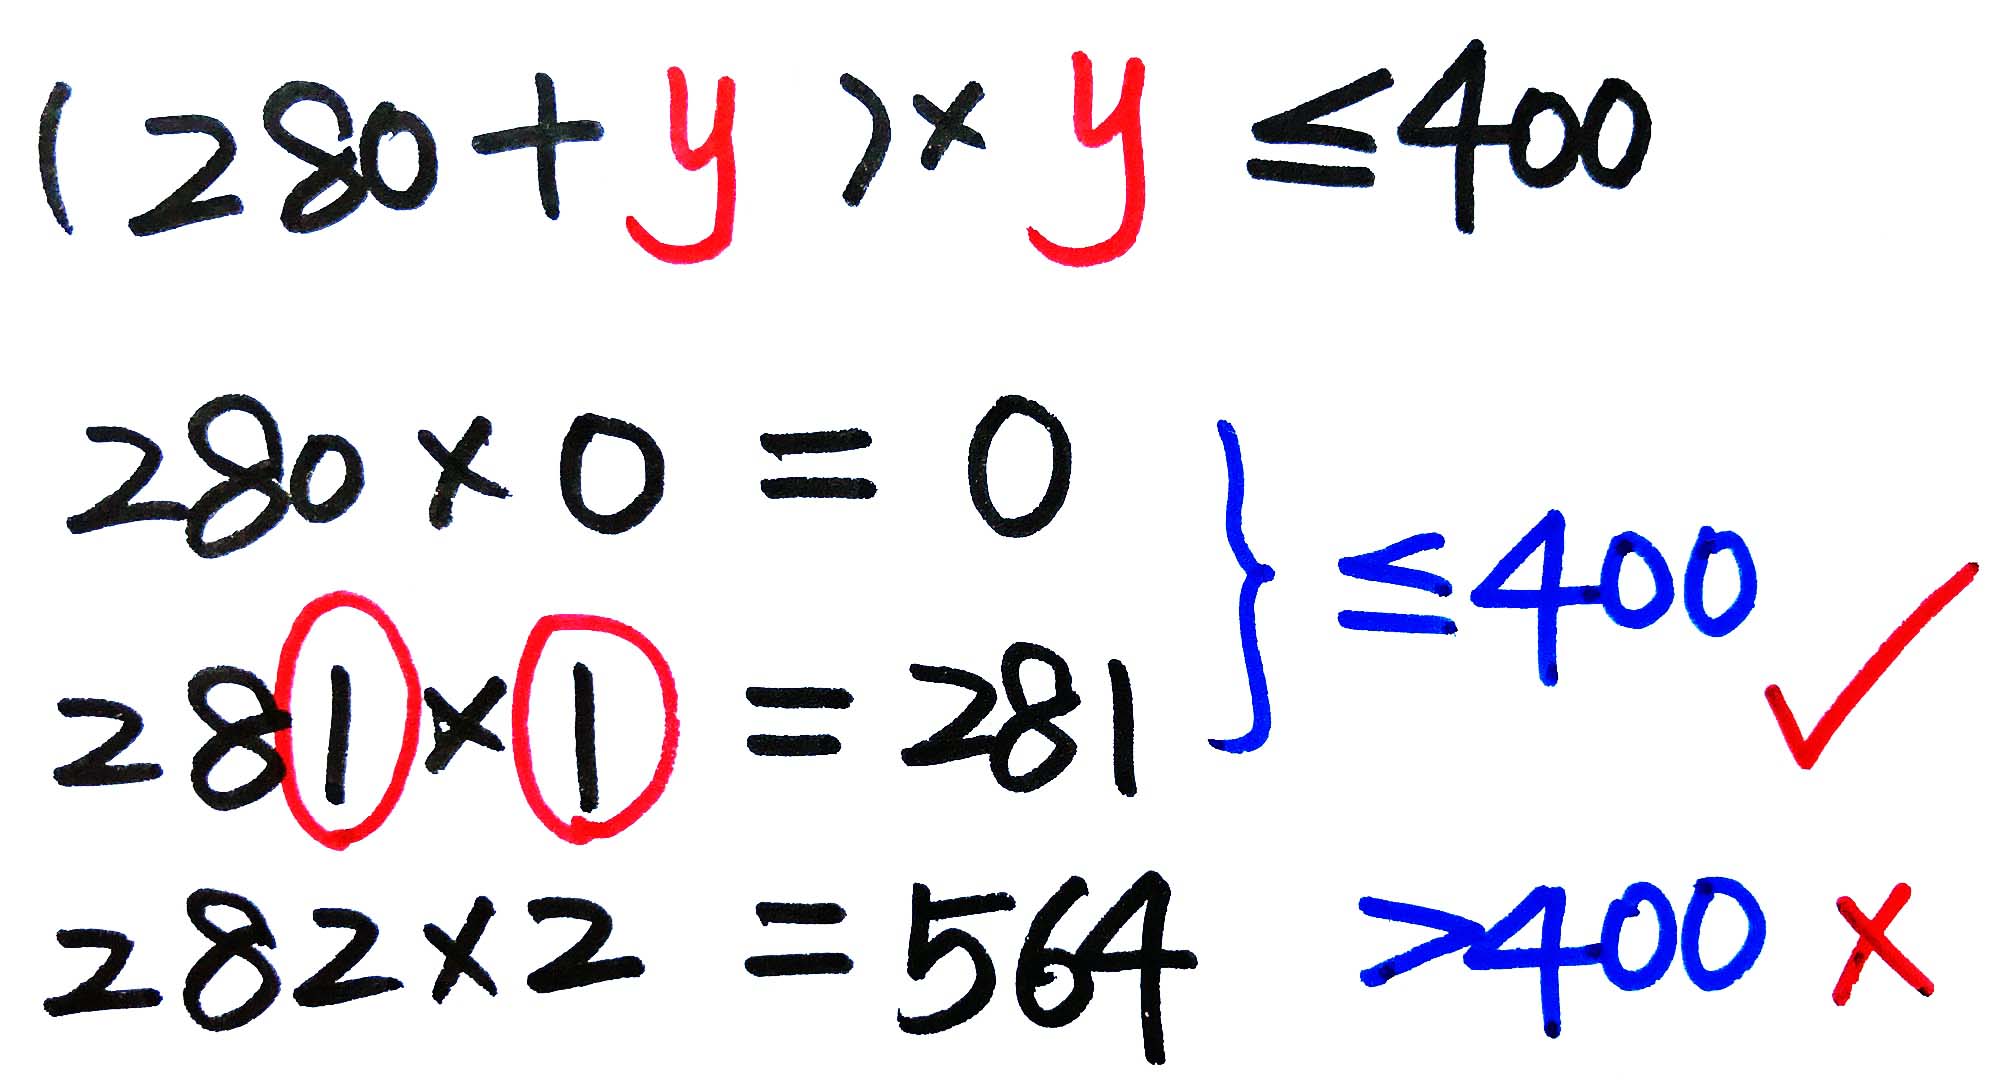 (280+y)×y ≤400
280×0=0
≤400 ✓
281×1=281
282×2=564 >400 ×